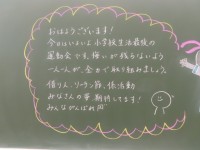 おはようございます!
今日はいよいよ小学校生活最後の
運動会です。悔いが残らないよう
一人一人が、全力で取り組みましょう。
借り人、リーサン節、係活動
みなさんの事 期待してます!
みんながんばれ